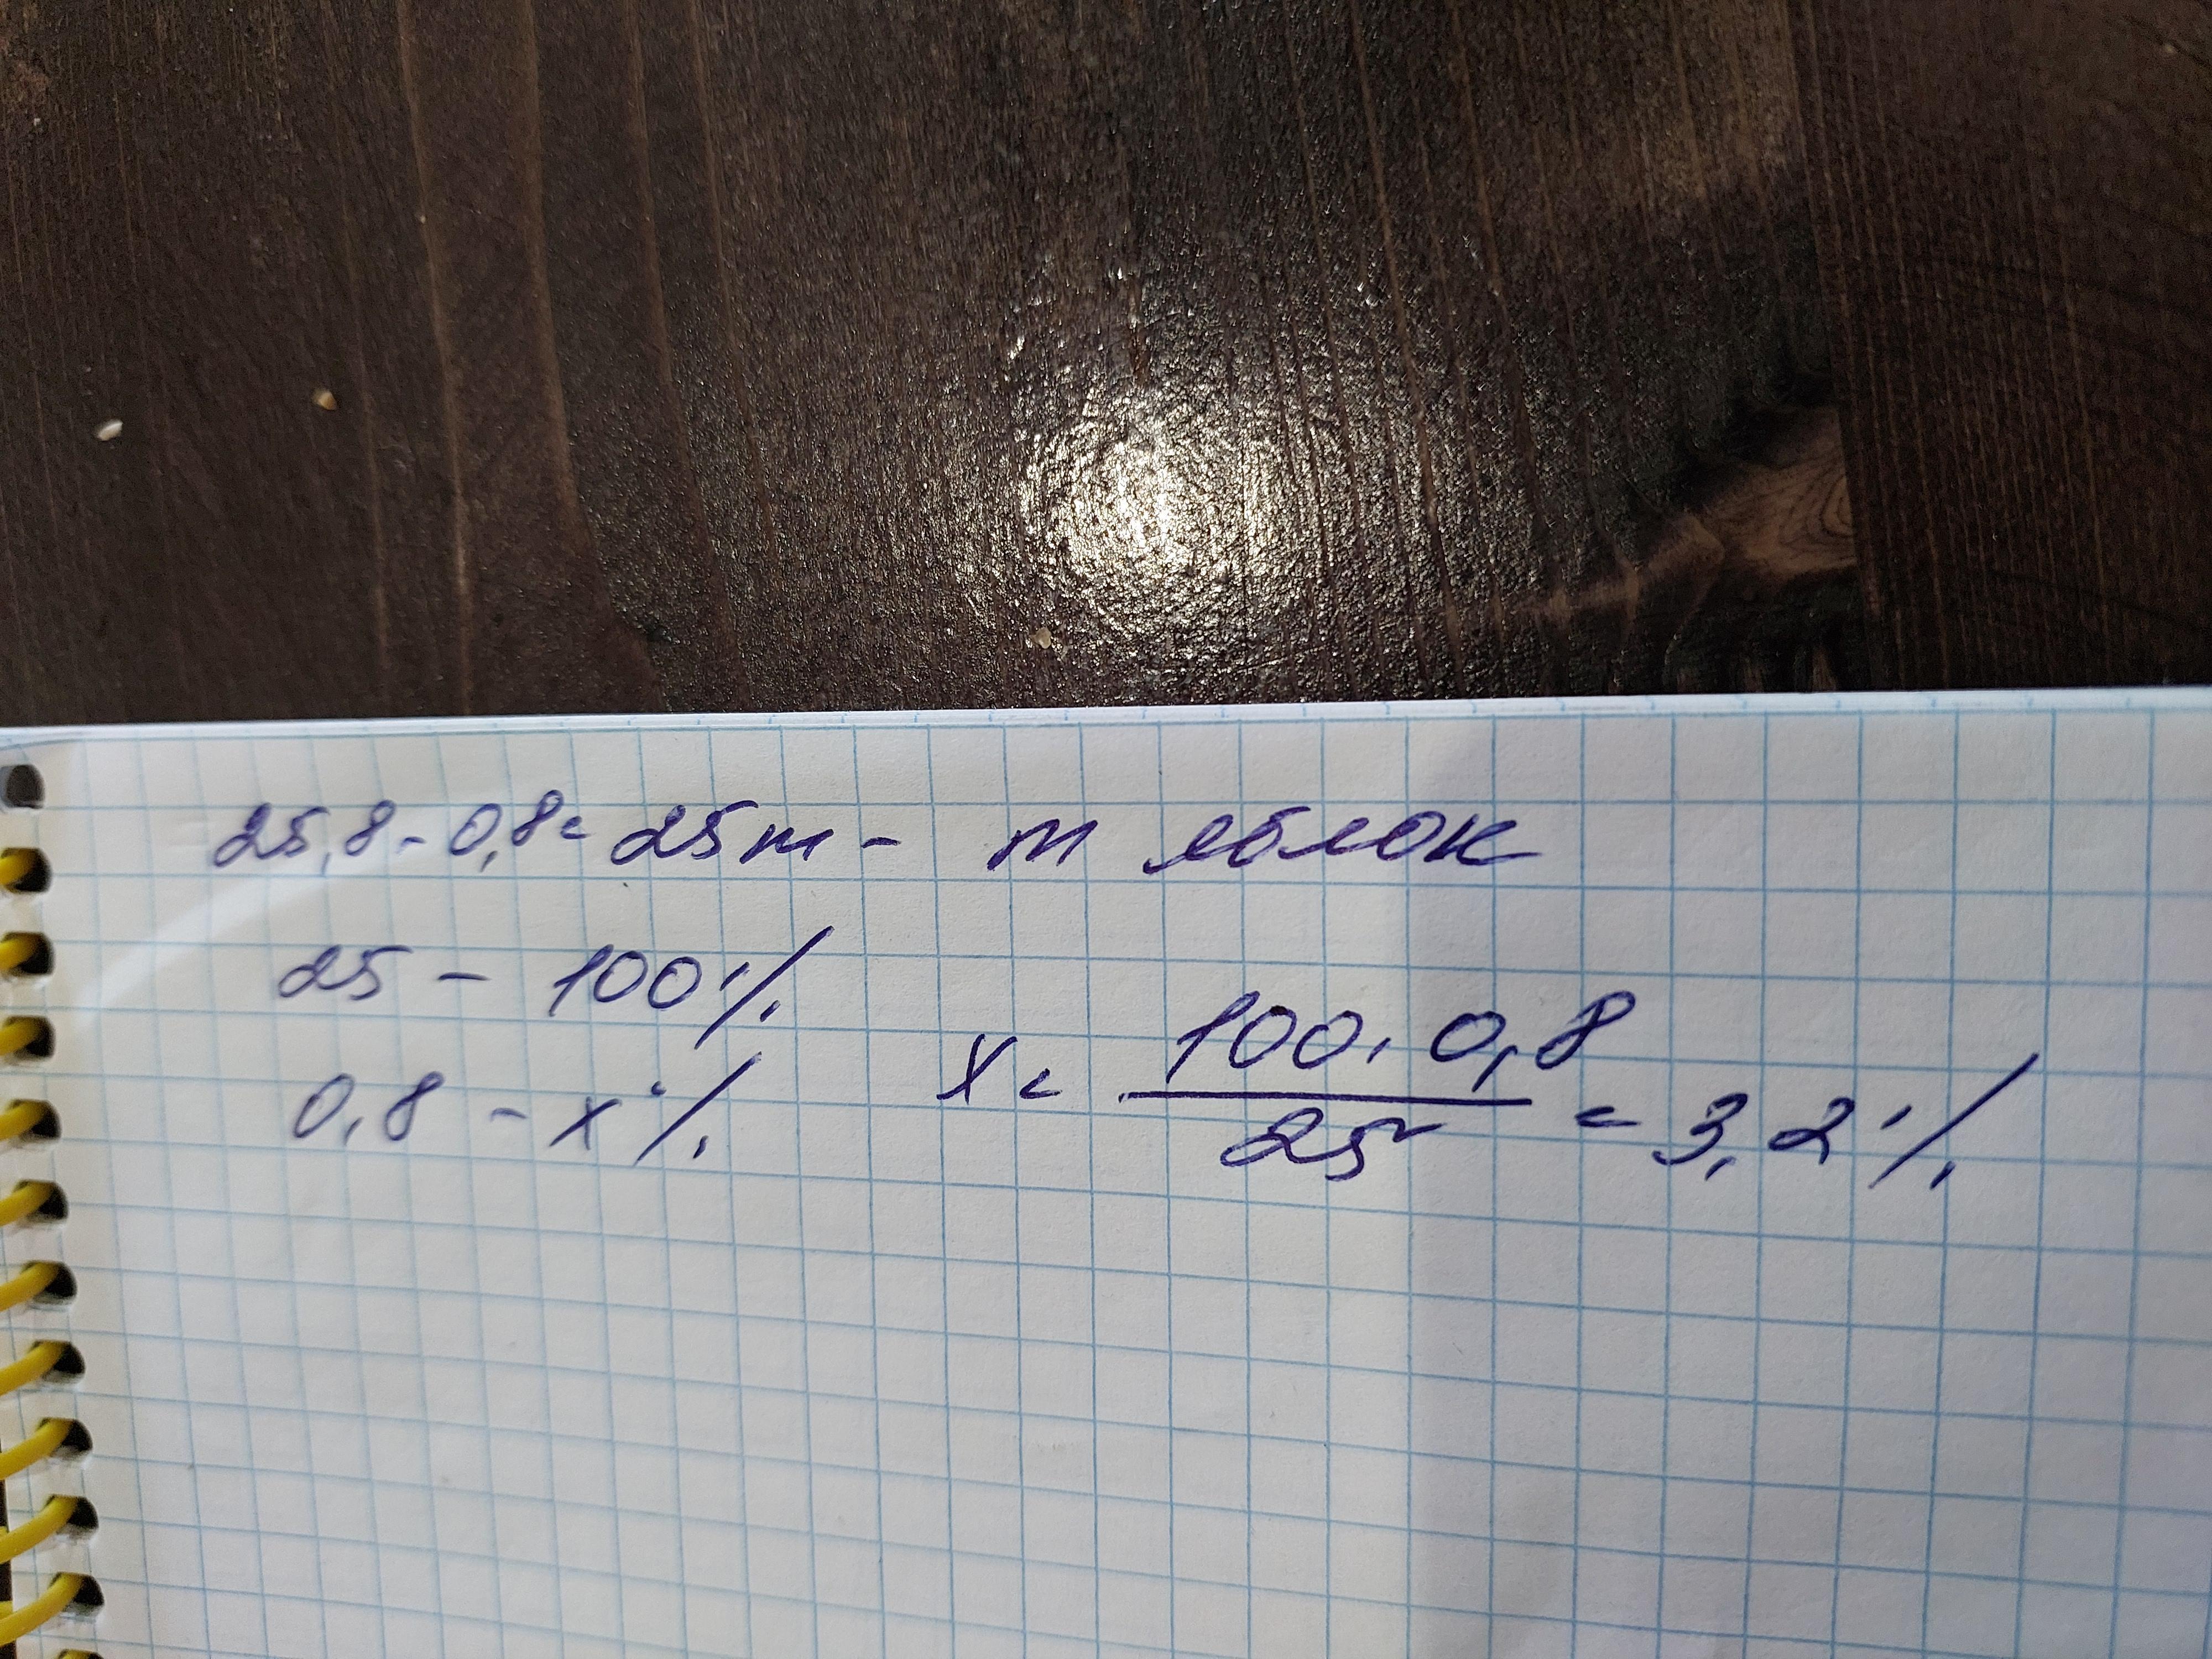 25,8 - 0,8 = 25т - m яблок
25 - 100%
0,8 - x%
x = 100 · 0,8 / 25 = 3,2%